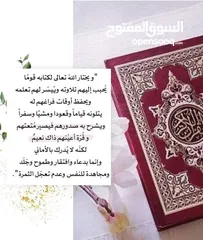 السوق المفتوح
opensooq.com
"و يختار الله تعالى لكتابه قومًا
يحبب إليهم تلاوته ويُيسّر لهم تعلمه
ويحفظ أوقات فراغهم له
يتلونه قيامًا وقعودًا ومشيًا وسفراً
ويشرح به صدورهم فيصير مُتعتهم
و قُرّة أعيُنهم ذاك نعيمٌ
لكنّه لا يُدرك بالأماني
وإنما بدعاء وافتقار وطموح وجَلَد
ومجاهدة للنفس وعدم تعجّل الثمرة".